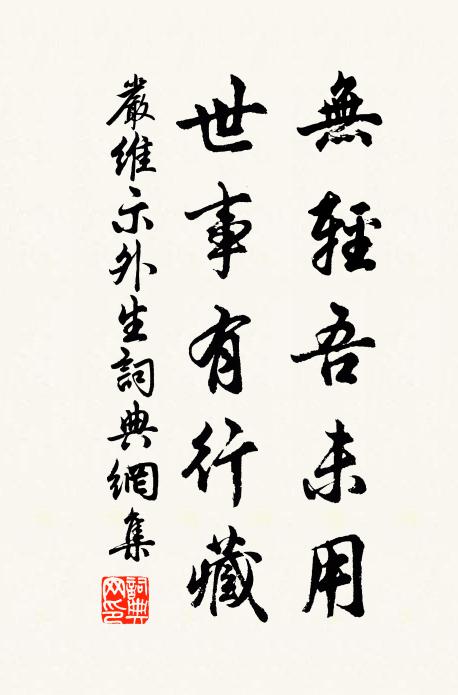 無輕吾未用
世事有行藏
嚴維示外生詞典網集
詞典網印